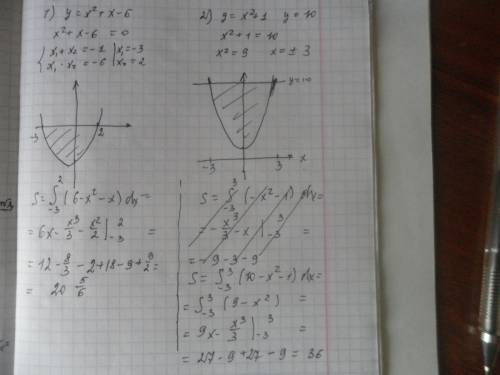 1) y = x² + x - 6
x² + x - 6 = 0
{ x₁ + x₂ = -1 | x₁ = -3
x₁ · x₂ = -6 | x₂ = 2
-3 2
S = ∫₋₃² (6 - x² - x) dx =
= 6x - x³/3 - x²/2 |₋₃² =
= 12 - 8/3 - 2 + 18 - 9 + 9/2 =
= 20 5/6
2) y = x² + 1 y = 10
x² + 1 = 10
x² = 9 x = ± 3
y = 10
-3 3 x
S = ∫₋₃³ (-x² - 1) dx =
= - x³/3 - x |₋₃³ =
= -9 - 3 - 9
S = ∫₋₃³ (10 - x² - 1) dx =
= ∫₋₃³ (9 - x²) =
= 9x - x³/3 |₋₃³ =
= 27 - 9 + 27 - 9 = 36